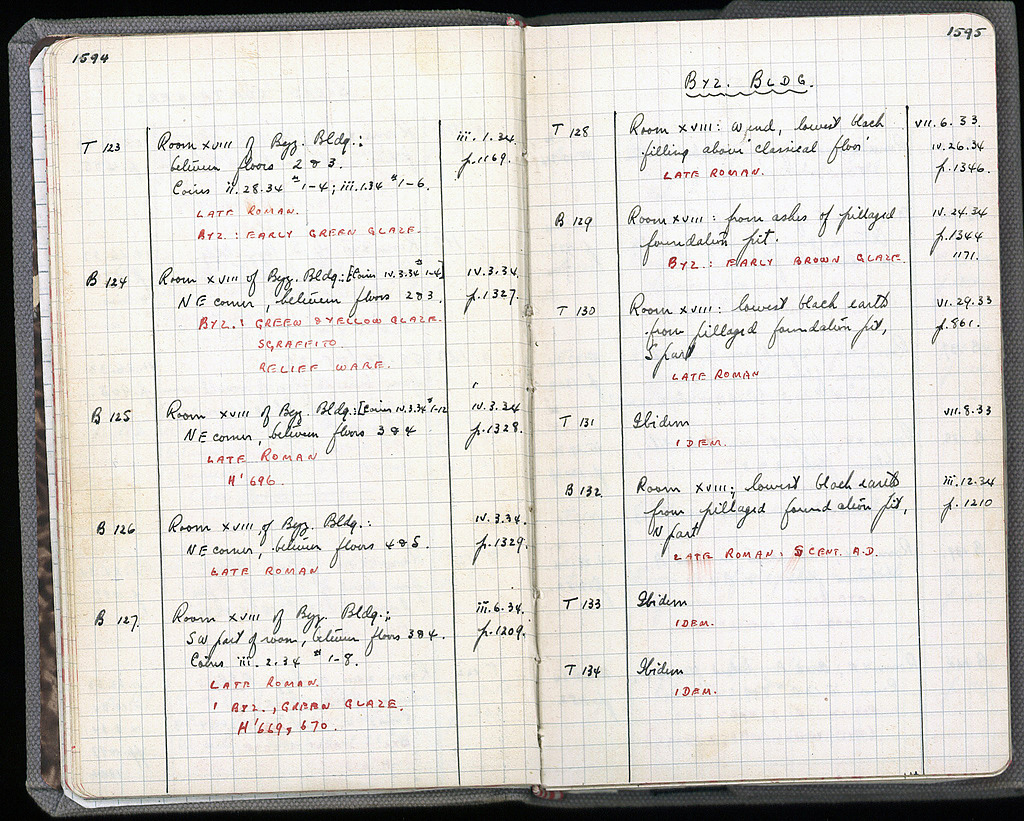 1594
T 123 Room XVIII of Byz. Bldg.: iii.1.34
between floors 2 & 3. p.1169.
Coins ii.28.34 #1-4; iii.1.34 #1-6.
LATE ROMAN.
BYZ.: EARLY GREEN GLAZE.
B 124 Room XVIII of Byz. Bldg.: [Coins IV.3.34 #1-4] IV.3.34
NE corner, between floors 2&3. p.1327.
BYZ.: GREEN & YELLOW GLAZE.
SGRAFFITO.
RELIEF WARE.
B 125 Room XVIII of Byz. Bldg.: [Coins IV.3.34 #1-12 IV.3.34
NE corner, between floors 3 & 4 p.1328.
LATE ROMAN
H' 696.
B 126 Room XVIII of Byz. Bldg.: IV.3.34.
NE corner, between floors 4 & 5. p.1329.
LATE ROMAN
B 127. Room XVIII of Byz. Bldg.; iii.6.34.
SW part of room, between floors 3 & 4. p.1209.
Coins iii.2.34 #1-8.
LATE ROMAN.
1 BYZ., GREEN GLAZE.
H' 669, 670.
1595
BYZ. BLDG.
T 128 Room XVIII: W end, lowest black VII.6.33.
filling above 'classical floor' IV.26.34
LATE ROMAN. p.1346.
B 129 Room XVIII: from ashes of pillaged IV.24.34
foundation pit. p.1344
BYZ.: EARLY BROWN GLAZE. 1171.
T 130 Room XVIII: lowest black earth VI.29.33
from pillaged foundation pit, p.861.
S part
LATE ROMAN
T 131 Ibidem VII.8.33
IDEM.
B 132. Room XVIII; lowest black earth iii.12.34
from pillaged foundation pit, p.1210
N part
LATE ROMAN: 5 CENT. A.D.
T 133 Ibidem
IDEM.
T 134 Ibidem
IDEM.